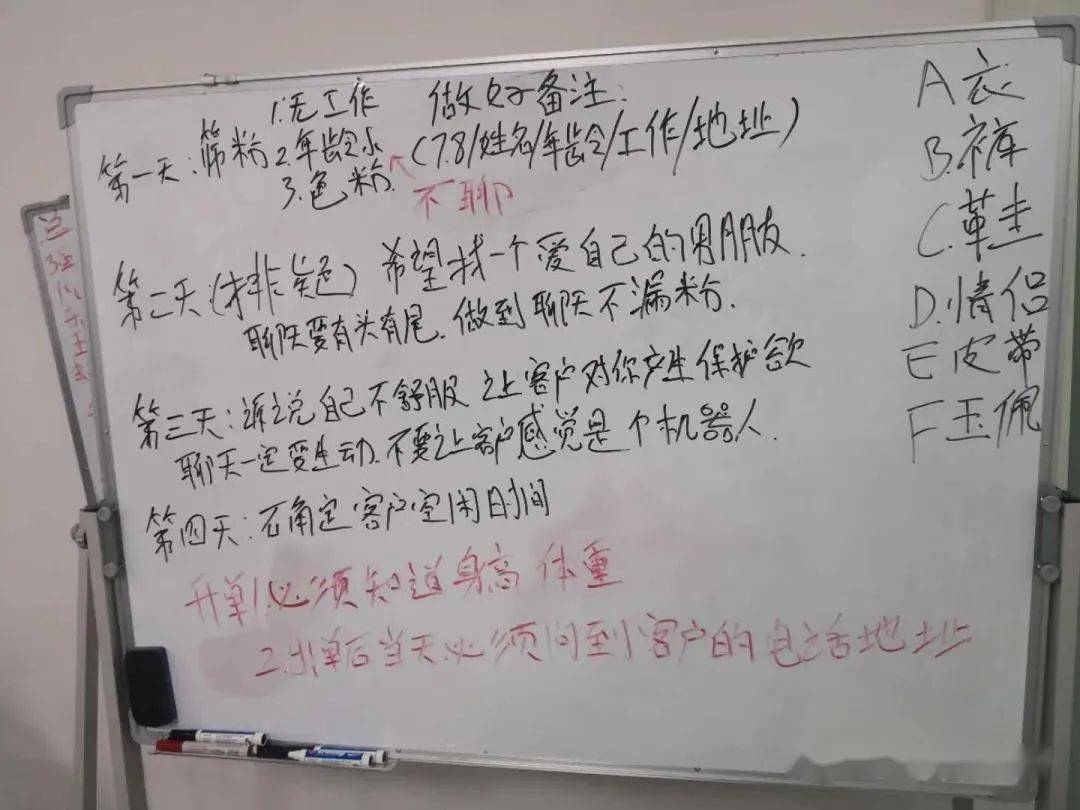 1.无工作 做好备注:
第一天:筛粉 2.年龄小 (7.8/姓名/年龄/工作/地址)
3.色粉. 不聊
第二天(排疑) 希望找一个爱自己的男朋友.
聊天要有头有尾.做到聊天不漏粉.
第三天:诉说自己不舒服 让客户对你产生保护欲
聊天一定要生动.不要让客户感觉是个机器人.
第四天:确定客户空闲时间
开单1.必须知道身高 体重
2.出单后当天必须问到客户的电话地址
A衣
B.裤
C.鞋
D.情侣
E皮带
F玉佩